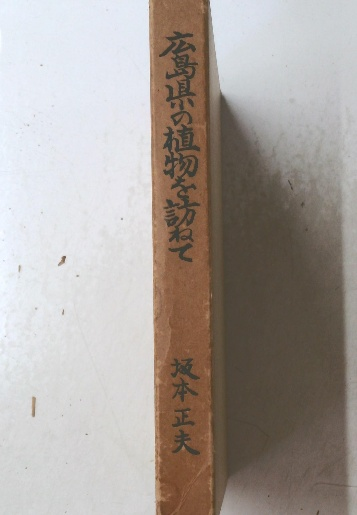 広島県の植物を訪ねて
坂本正夫